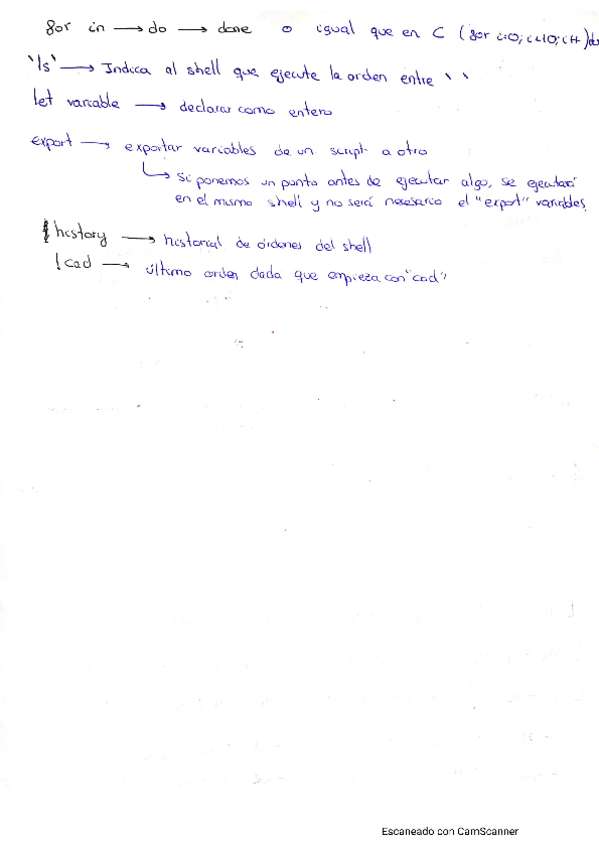 for in → do → done o igual que en C (for i=0; i<10; i++) do
`ls` → Indica al shell que ejecute la orden entre ` `
let variable → declarar como entero
export → exportar variables de un script a otro
↳ Si ponemos un punto antes de ejecutar algo, se ejecutará
en el mismo shell y no será necesario el "export" variables.
history → historial de órdenes del shell
!cad → último orden dada que empieza con "cad"
Escaneado con CamScanner